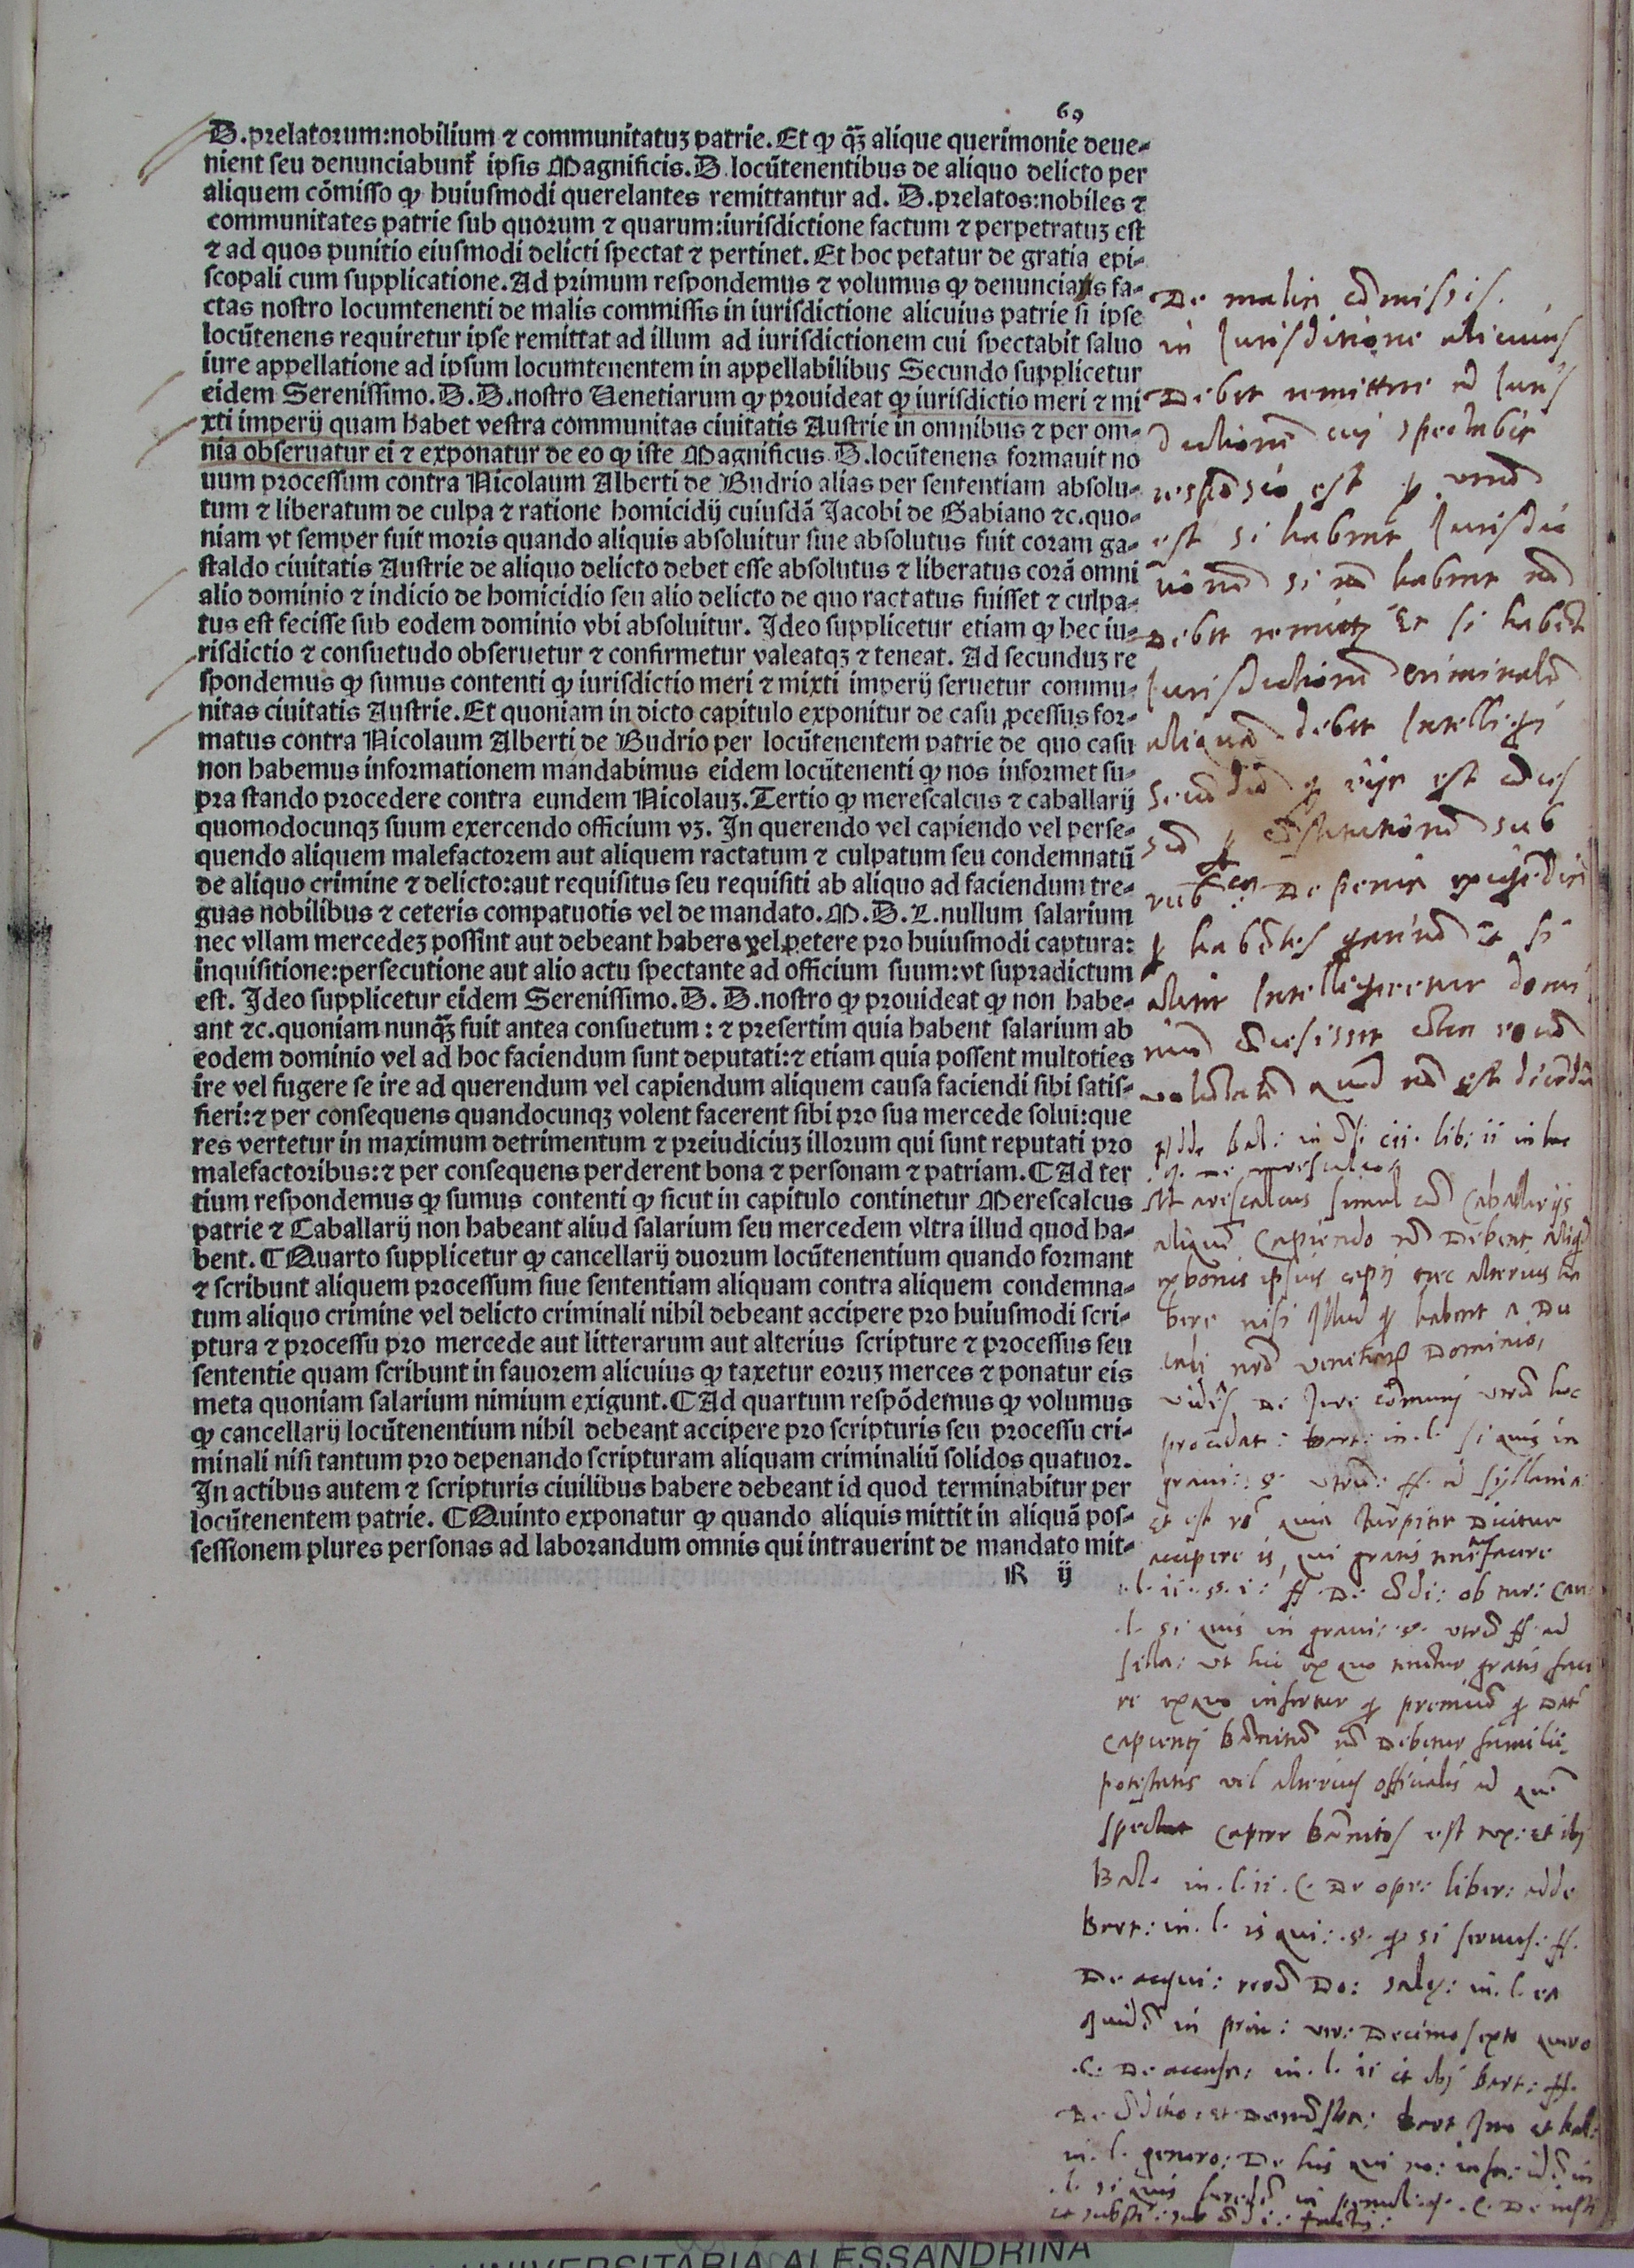 60
D.prelatorum:nobilium ⁊ communitatuʒ patrie. Et ꝙ qʒ̃ alique querimonie deue-
nient seu denunciabunt̃ ipsis Magnificis.D.locũtenentibus de aliquo delicto per
aliquem cõmisso ꝙ huiusmodi querelantes remittantur ad.D.prelatos:nobiles ⁊
communitates patrie sub quorum ⁊ quarum:iurisdictione factum ⁊ perpetratuʒ est
⁊ ad quos punitio eiusmodi delicti spectat ⁊ pertinet. Et hoc petatur de gratia epi-
scopali cum supplicatione. Ad primum respondemus ⁊ volumus ꝙ denuncias fa-
ctas nostro locumtenenti de malis commissis in iurisdictione alicuius patrie si ipse
locũtenens requiretur ipse remittat ad illum ad iurisdictionem cui spectabit saluo
iure appellatione ad ipsum locumtenentem in appellabilibus Secundo supplicetur
eidem Serenissimo.D.D.nostro Uenetiarum ꝙ prouideat ꝙ iurisdictio meri ⁊ mi
xti imperij quam habet vestra communitas ciuitatis Austrie in omnibus ⁊ per om-
nia obseruatur ei ⁊ exponatur de eo ꝙ iste Magnificus.D.locũtenens formauit no
uum processum contra Nicolaum Alberti de Budrio alias per sententiam absolu-
tum ⁊ liberatum de culpa ⁊ ratione homicidij cuiusdã Jacobi de Gabiano ⁊c.quo-
niam vt semper fuit moris quando aliquis absoluitur siue absolutus fuit coram ga-
staldo ciuitatis Austrie de aliquo delicto debet esse absolutus ⁊ liberatus corã omni
alio dominio ⁊ indicio de homicidio seu alio delicto de quo ractatus fuisset ⁊ culpa-
tus est fecisse sub eodem dominio vbi absoluitur. Ideo supplicetur etiam ꝙ hec iu-
risdictio ⁊ consuetudo obseruetur ⁊ confirmetur valeatqʒ ⁊ teneat. Ad secunduʒ re
spondemus ꝙ sumus contenti ꝙ iurisdictio meri ⁊ mixti imperij seruetur commu-
nitas ciuitatis Austrie. Et quoniam in dicto capitulo exponitur de casu ꝓcessus for-
matus contra Nicolaum Alberti de Budrio per locũtenentem patrie de quo casu
non habemus informationem mandabimus eidem locũtenenti ꝙ nos informet su-
pra stando procedere contra eundem Nicolauʒ. Tertio ꝙ merescalcus ⁊ caballarij
quomodocunqʒ suum exercendo officium vʒ. In querendo vel capiendo vel perse-
quendo aliquem malefactorem aut aliquem ractatum ⁊ culpatum seu condemnatũ
de aliquo crimine ⁊ delicto:aut requisitus seu requisiti ab aliquo ad faciendum tre-
guas nobilibus ⁊ ceteris compatuotis vel de mandato.M.D.L.nullum salarium
nec vllam mercedeʒ possint aut debeant habere vel petere pro huiusmodi captura:
inquisitione:persecutione aut alio actu spectante ad officium suum:vt supradictum
est. Ideo supplicetur eidem Serenissimo.D.D.nostro ꝙ prouideat ꝙ non habe-
ant ⁊c.quoniam nunqʒ̃ fuit antea consuetum : ⁊ presertim quia habent salarium ab
eodem dominio vel ad hoc faciendum sunt deputati:⁊ etiam quia possent multoties
ire vel fugere se ire ad querendum vel capiendum aliquem causa faciendi sibi satis-
fieri:⁊ per consequens quandocunqʒ volent facerent sibi pro sua mercede solui:que
res vertetur in maximum detrimentum ⁊ preiudiciuʒ illorum qui sunt reputati pro
malefactoribus:⁊ per consequens perderent bona ⁊ personam ⁊ patriam. ¶ Ad ter
tium respondemus ꝙ sumus contenti ꝙ sicut in capitulo continetur Merescalcus
patrie ⁊ Caballarij non habeant aliud salarium seu mercedem vltra illud quod ha-
bent. ¶ Quarto supplicetur ꝙ cancellarij duorum locũtenentium quando formant
⁊ scribunt aliquem processum siue sententiam aliquam contra aliquem condemna-
tum aliquo crimine vel delicto criminali nihil debeant accipere pro huiusmodi scri-
ptura ⁊ processu pro mercede aut litterarum aut alterius scripture ⁊ processus seu
sententie quam scribunt in fauorem alicuius ꝙ taxetur eoruʒ merces ⁊ ponatur eis
meta quoniam salarium nimium exigunt. ¶ Ad quartum respõdemus ꝙ volumus
ꝙ cancellarij locũtenentium nihil debeant accipere pro scripturis seu processu cri-
minali nisi tantum pro depenando scripturam aliquam criminaliũ solidos quatuor.
In actibus autem ⁊ scripturis ciuilibus habere debeant id quod terminabitur per
locũtenentem patrie. ¶ Quinto exponatur ꝙ quando aliquis mittit in aliquã pos-
sessionem plures personas ad laborandum omnis qui intrauerint de mandato mit-
R ij
De malis cõmissis.
in Jurisditione alicuius
Debet remittere ad Juris
dictionẽ cui spectabit
est si habent Jurisdic
tionẽ si nõ habent nõ
Debet remitti Et si habet
Jurisdictionẽ criminalẽ
aliquã debet Intelligi
De penis
aliter Intelligeretur domi
voluntatẽ quod nõ est dicendũ
Merescalcus simul cũ Caballarijs
aliquẽ Capiendo nõ Debent aliqd
ex bonis ipsius nec alterius ha
bere nisi Illud ꝙ habent a Du
cali Dominio,
De Jure cõmuni utrũ hoc
procedat : bart: in.l. si quis in
graui: §. utrũ: ff. ad syllania:
Et est rõ quia turpiter Dicitur
accipere is qui gratis facere
.l. si quis in graui: §. utrũ ff. ad
silla: ut hic ex quo tenetur gratis face
re ex quo infertur ꝙ premiũ ꝙ Dat̃
Capienti bãnitũ nõ Debetur familie
potestatis vel alterius officialis ad quẽ
spectat Capere bãnitos est tex: et ibi
Bal. in.l.ii.C. De ope: liber: adde
bart: in.l. is qui: §. ꝙ si seruus: ff.
De acqui: rerũ Do: saly: in.l. ea
quidẽ in prin: ver: Decimosexto quero
.C. De accusa: in.l.ii et ibi bart: ff.
in.l. genero: De his qui no: infa: idẽ in